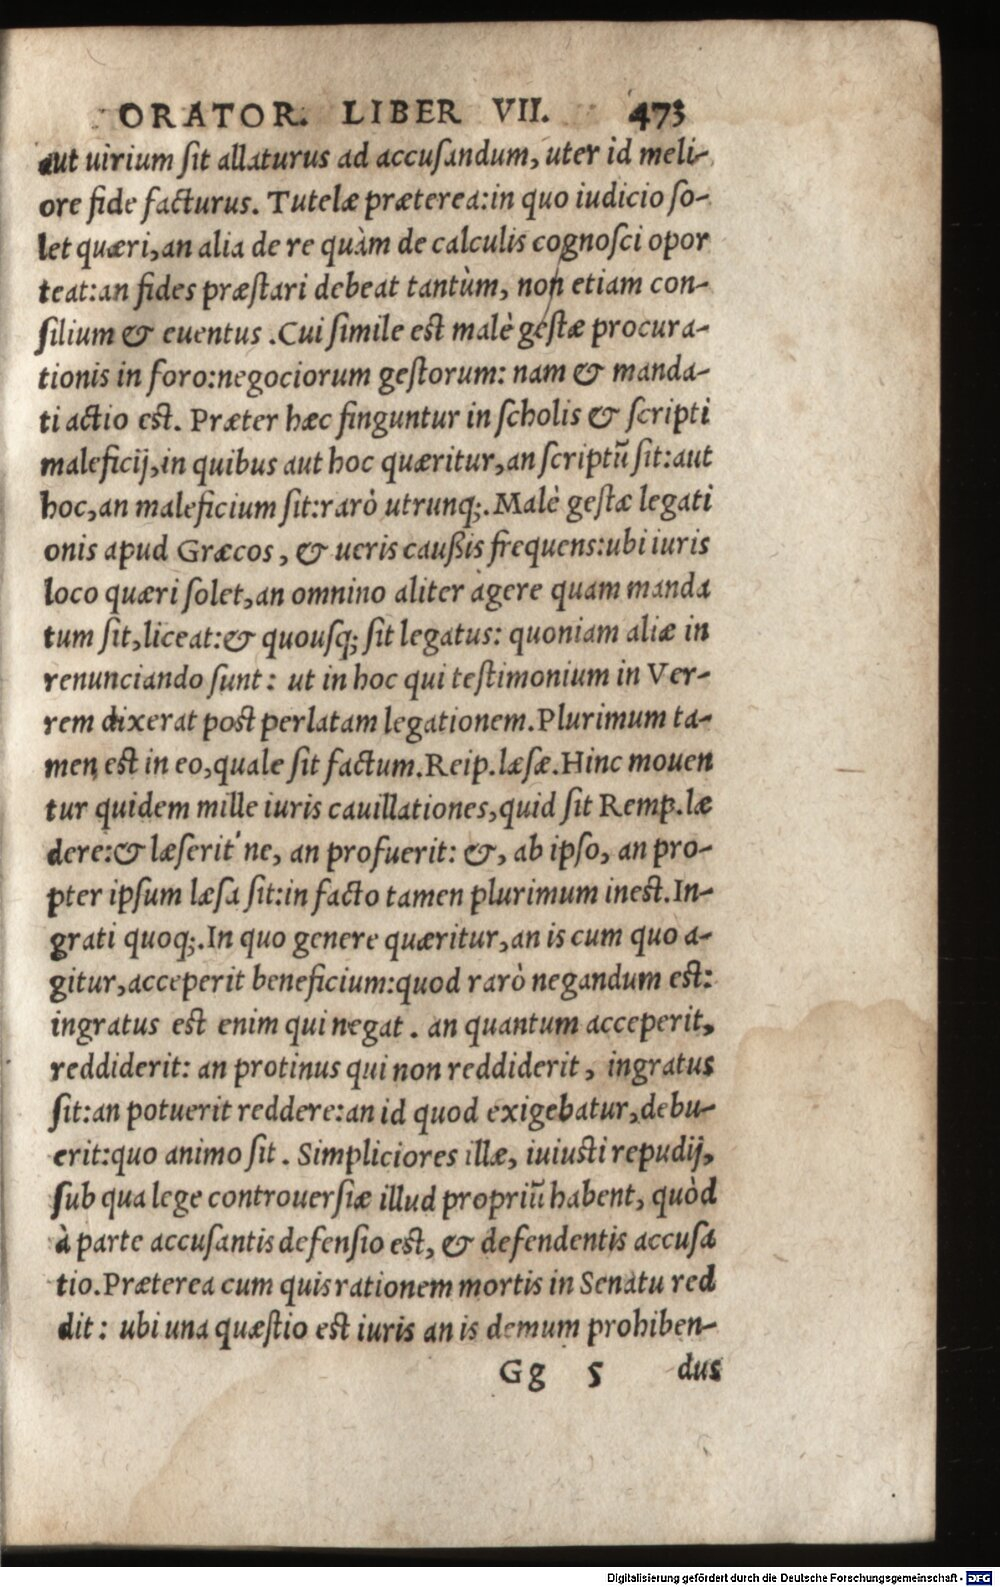 ORATOR. LIBER VII. 473
aut uirium sit allaturus ad accusandum, uter id meli-
ore fide facturus. Tutelæ præterea:in quo iudicio so-
let quæri,an alia de re quàm de calculis cognosci opor
teat:an fides præstari debeat tantùm, non etiam con-
silium & euentus .Cui simile est malè gestæ procura-
tionis in foro:negociorum gestorum: nam & manda-
ti actio est. Præter hæc finguntur in scholis & scripti
maleficij,in quibus aut hoc quæritur,an scriptũ sit:aut
hoc,an maleficium sit:rarò utrunq;.Malè gestæ legati
onis apud Græcos, & ueris caußis frequens:ubi iuris
loco quæri solet,an omnino aliter agere quam manda
tum sit,liceat:& quousq; sit legatus: quoniam aliæ in
renunciando sunt: ut in hoc qui testimonium in Ver-
rem dixerat post perlatam legationem.Plurimum ta-
men est in eo,quale sit factum.Reip.læsæ.Hinc mouen
tur quidem mille iuris cauillationes,quid sit Remp.læ
dere:& læserit'ne, an profuerit: &, ab ipso, an pro-
pter ipsum læsa sit:in facto tamen plurimum inest.In-
grati quoq;.In quo genere quæritur,an is cum quo a-
gitur,acceperit beneficium:quod rarò negandum est:
ingratus est enim qui negat. an quantum acceperit,
reddiderit: an protinus qui non reddiderit, ingratus
sit:an potuerit reddere:an id quod exigebatur,debu-
erit:quo animo sit. Simpliciores illæ, iuiusti repudij,
sub qua lege controuersiæ illud propriũ habent, quòd
à parte accusantis defensio est, & defendentis accusa
tio.Præterea cum quis rationem mortis in Senatu red
dit: ubi una quæstio est iuris an is demum prohiben-
Gg 5 dus
Digitalisierung gefördert durch die Deutsche Forschungsgemeinschaft - DFG